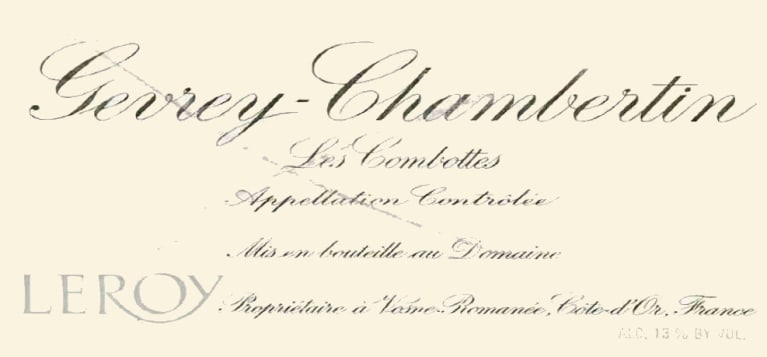 Gevrey-Chambertin
Les Combottes
Appellation Contrôlée
Mis en bouteille au Domaine
LEROY Propriétaire à Vosne-Romanée, Côte-d'Or, France
ALC. 13 % BY VOL.